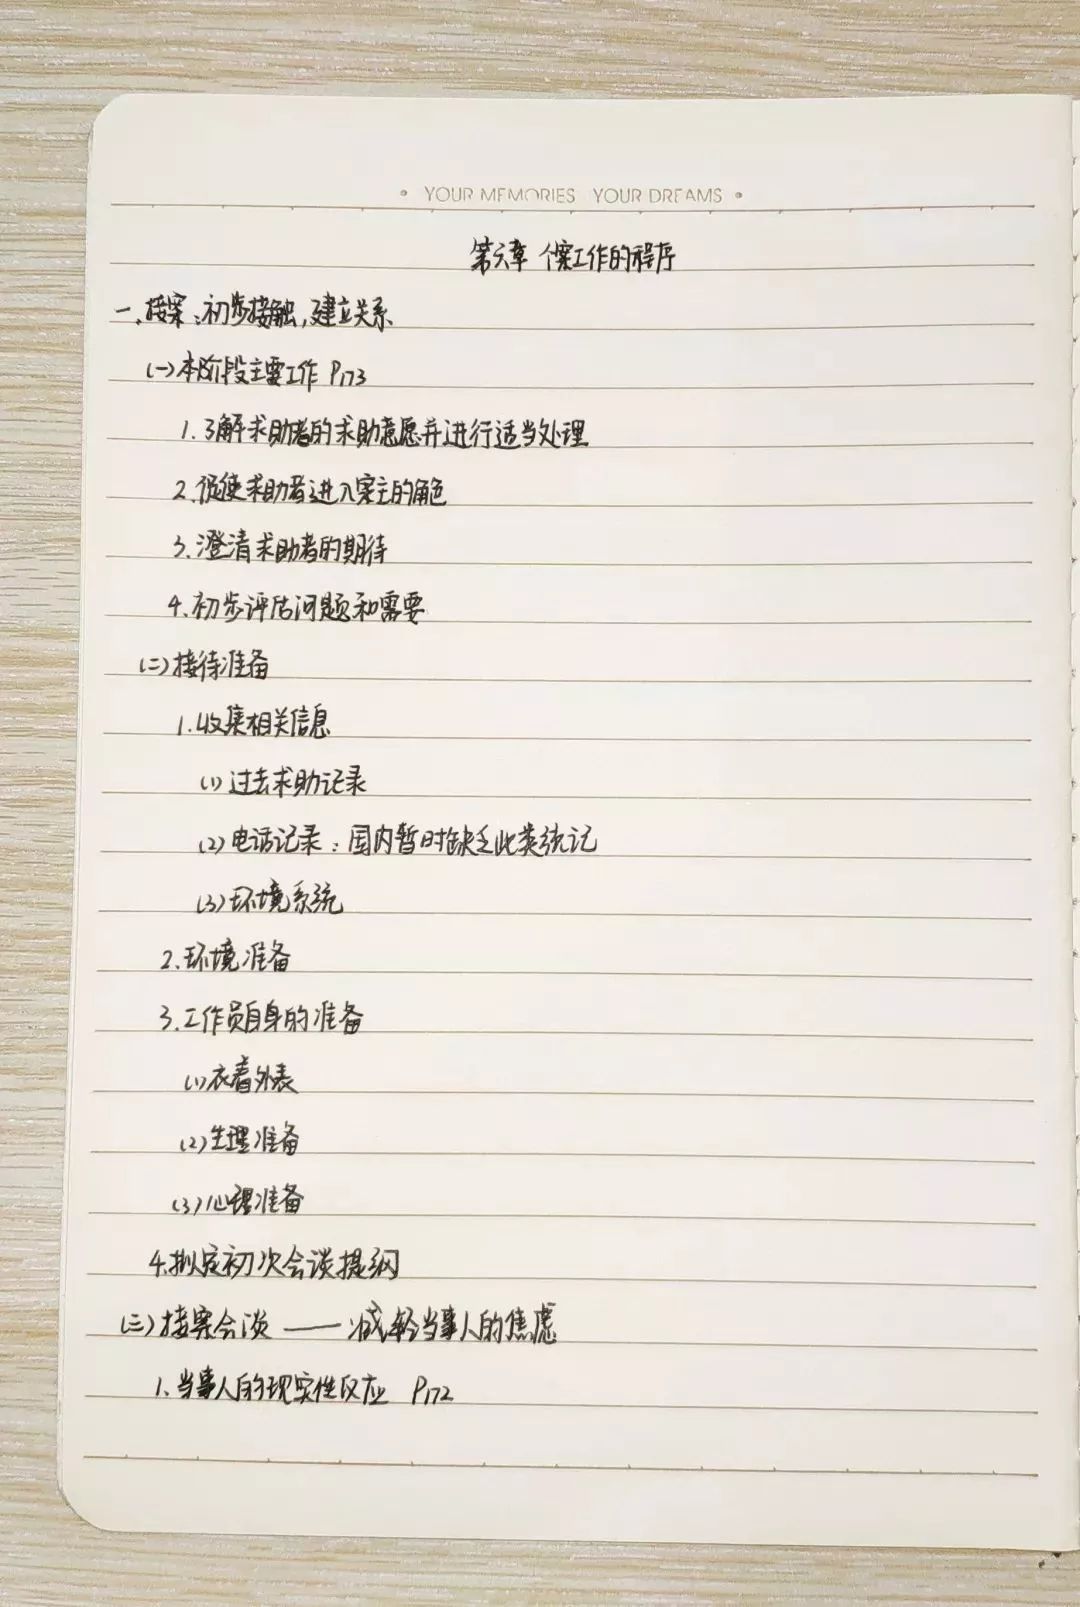 YOUR MEMORIES YOUR DREAMS
第六章 个案工作的程序
一、接案:初步接触,建立关系
(一)本阶段主要工作 P173
1.了解求助者的求助意愿并进行适当处理
2.促使求助者进入案主的角色
3.澄清求助者的期待
4.初步评估问题和需要
(二)接待准备
1.收集相关信息
(1)过去求助记录
(2)电话记录:国内暂时缺乏此类统记
(3)环境系统
2.环境准备
3.工作员自身的准备
(1)衣着外表
(2)生理准备
(3)心理准备
4.拟定初次会谈提纲
(三)接案会谈——减轻当事人的焦虑
1.当事人的现实性反应 P172